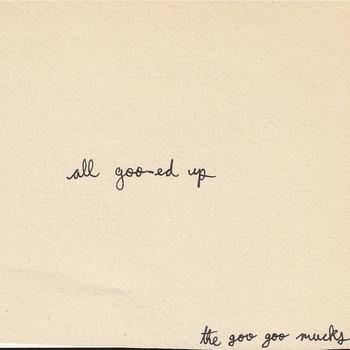 all goo-ed up
the goo goo mucks